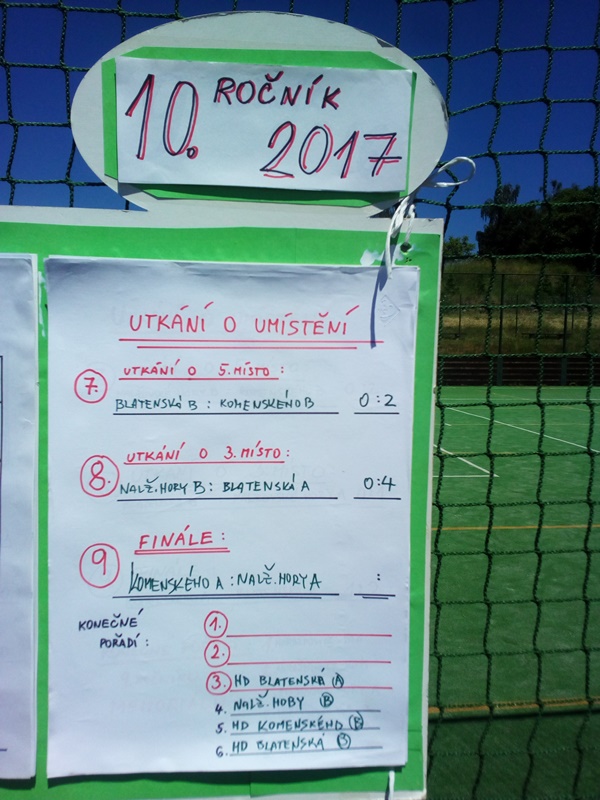 10. ROČNÍK
2017
UTKÁNÍ O UMÍSTĚNÍ
7. UTKÁNÍ O 5. MÍSTO:
BLATENSKÁ B : KOMENSKÉHO B 0:2
8. UTKÁNÍ O 3. MÍSTO:
NALŽ. HORY B : BLATENSKÁ A 0:4
9 FINÁLE:
KOMENSKÉHO A : NALŽ. HORY A :
KONEČNÉ
POŘADÍ:
1.
2.
3. HD BLATENSKÁ A
4. NALŽ. HORY B
5. HD KOMENSKÉHO B
6. HD BLATENSKÁ B